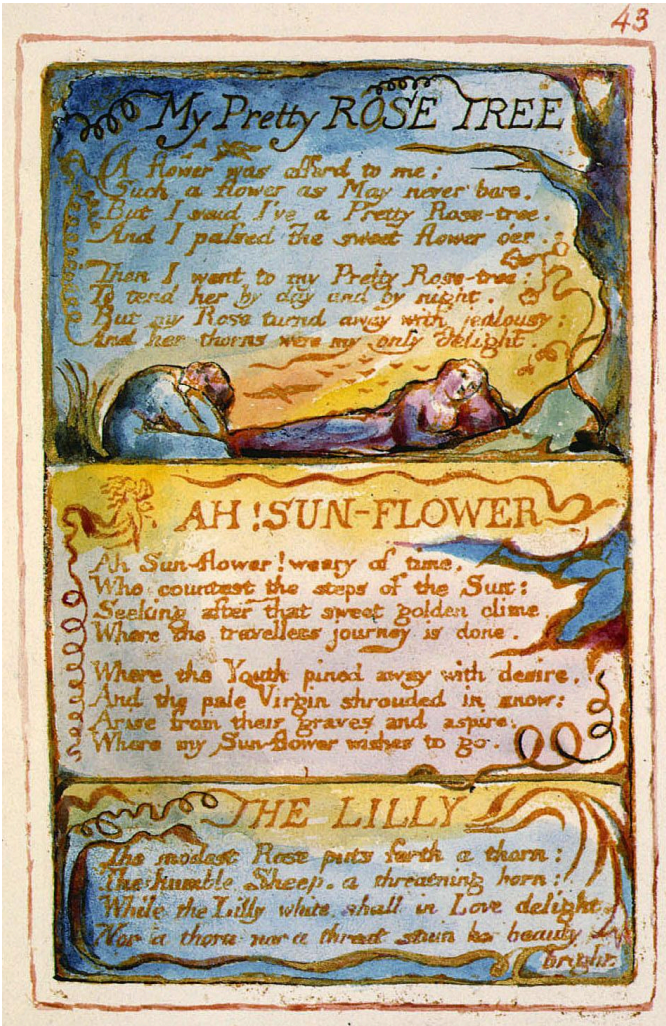 43
My Pretty ROSE TREE
A flower was offerd to me:
Such a flower as May never bore.
But I said I've a Pretty Rose-tree.
And I passed the sweet flower o'er.
Then I went to my Pretty Rose-tree:
To tend her by day and by night.
But my Rose turnd away with jealousy:
And her thorns were my only delight.
AH! SUN-FLOWER
Ah Sun-flower! weary of time,
Who countest the steps of the Sun:
Seeking after that sweet golden clime
Where the travellers journey is done.
Where the Youth pined away with desire,
And the pale Virgin shrouded in snow:
Arise from their graves and aspire,
Where my Sun-flower wishes to go.
THE LILLY
The modest Rose puts forth a thorn:
The humble Sheep, a threatning horn:
While the Lilly white, shall in Love delight,
Nor a thorn nor a threat stain her beauty
bright.